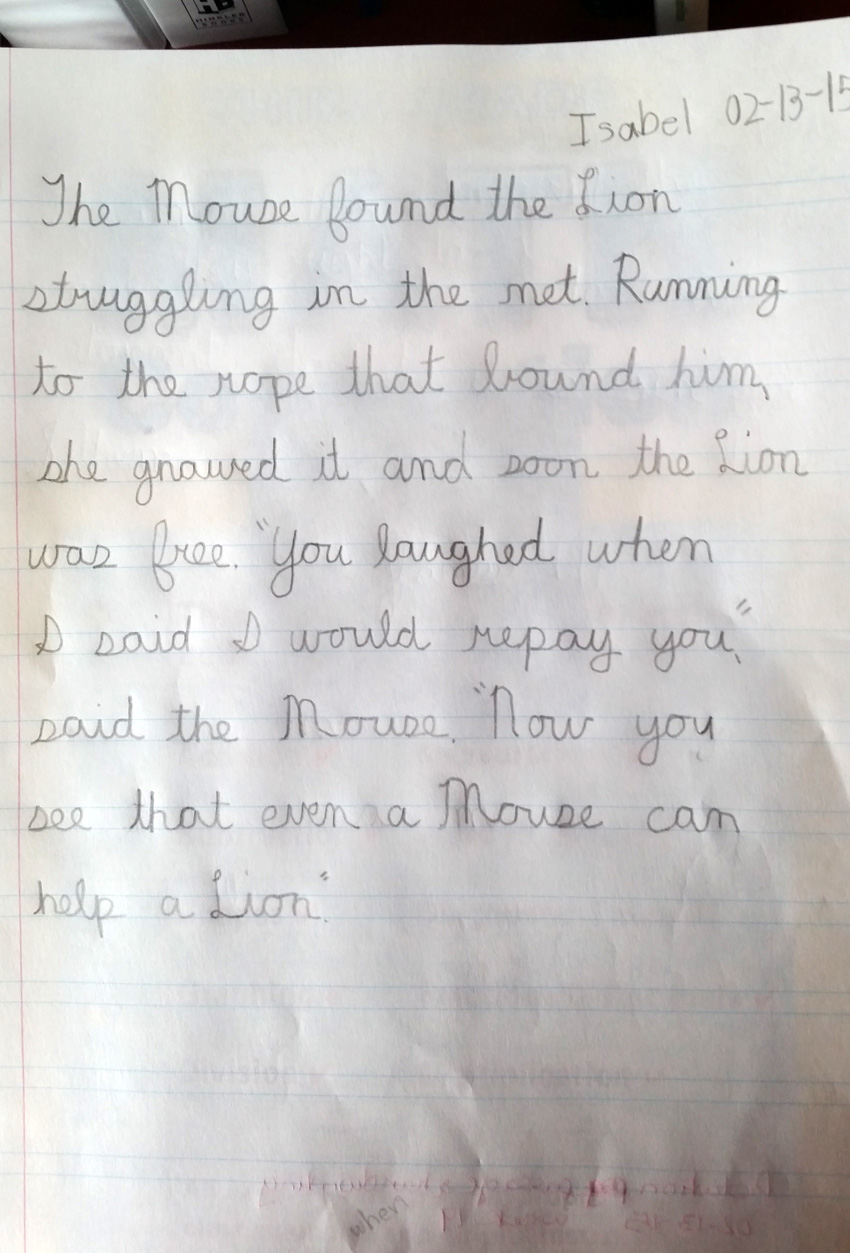 HB
HINKLER
BOOKS
Isabel 02-13-15
The Mouse found the Lion
struggling in the net. Running
to the rope that bound him,
she gnawed it and soon the Lion
was free. "You laughed when
I said I would repay you,"
said the Mouse. "Now you
see that even a Mouse can
help a Lion."
when